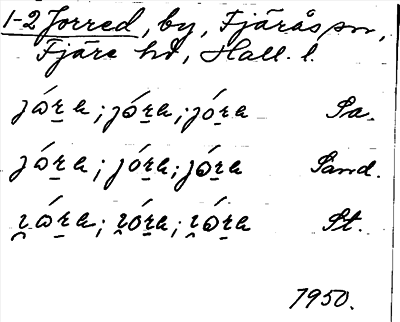 1-2 Jorred, by, Fjärås sn,
Fjäre hd, Hall. l.
jǿra; jóra; jóra Sa.
jǿra; jóra; jǿra Sand.
ı̯ǿra; ı̯óra; ı̯ǿra St.
1950.